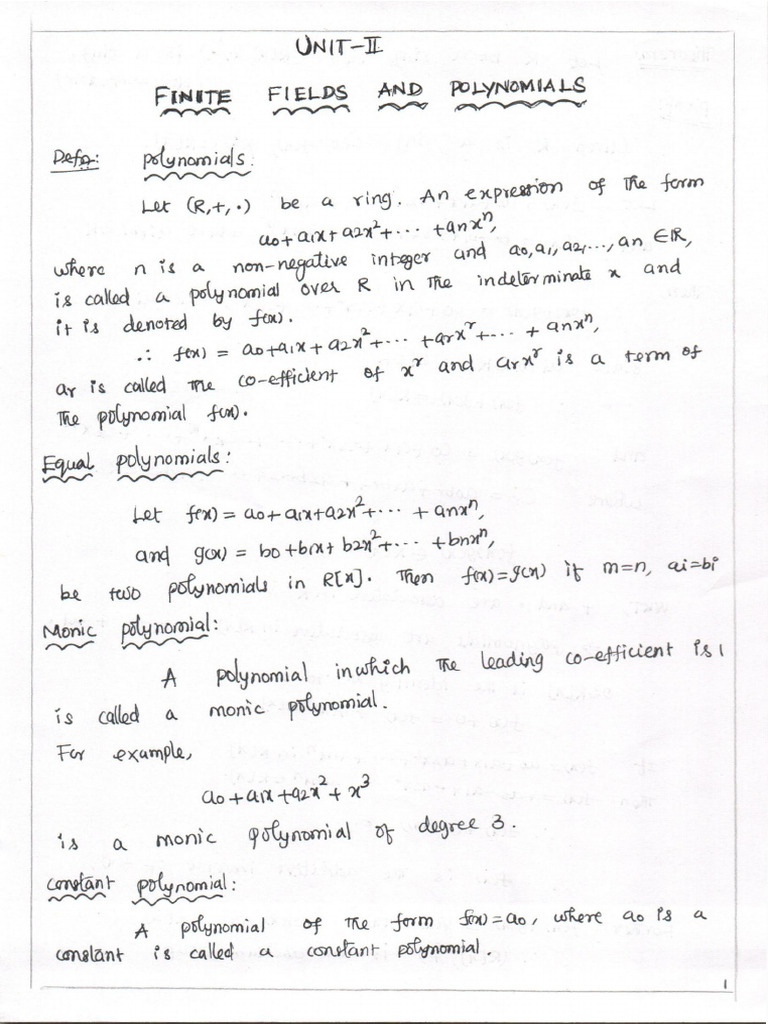 UNIT-II
FINITE FIELDS AND POLYNOMIALS
Defn: polynomials:
Let (R,+,•) be a ring. An expression of the form
a0+a1x+a2x²+··· +anxⁿ,
where n is a non-negative integer and a0,a1,a2,...,an ∈R,
is called a polynomial over R in the indeterminate x and
it is denoted by f(x).
∴ f(x) = a0+a1x+a2x²+··· +arxʳ+··· + anxⁿ,
ar is called the co-efficient of xʳ and arxʳ is a term of
the polynomial f(x).
Equal polynomials:
Let f(x) = a0+a1x+a2x²+··· + anxⁿ,
and g(x) = b0+b1x+b2x²+··· + bnxⁿ,
be two polynomials in R[x]. Then f(x)=g(x) if m=n, ai=bi
Monic polynomial:
A polynomial in which the leading co-efficient is 1
is called a monic polynomial.
For example,
a0+a1x+a2x²+x³
is a monic polynomial of degree 3.
constant polynomial:
A polynomial of the form f(x)=a0, where a0 is a
constant is called a constant polynomial.
1